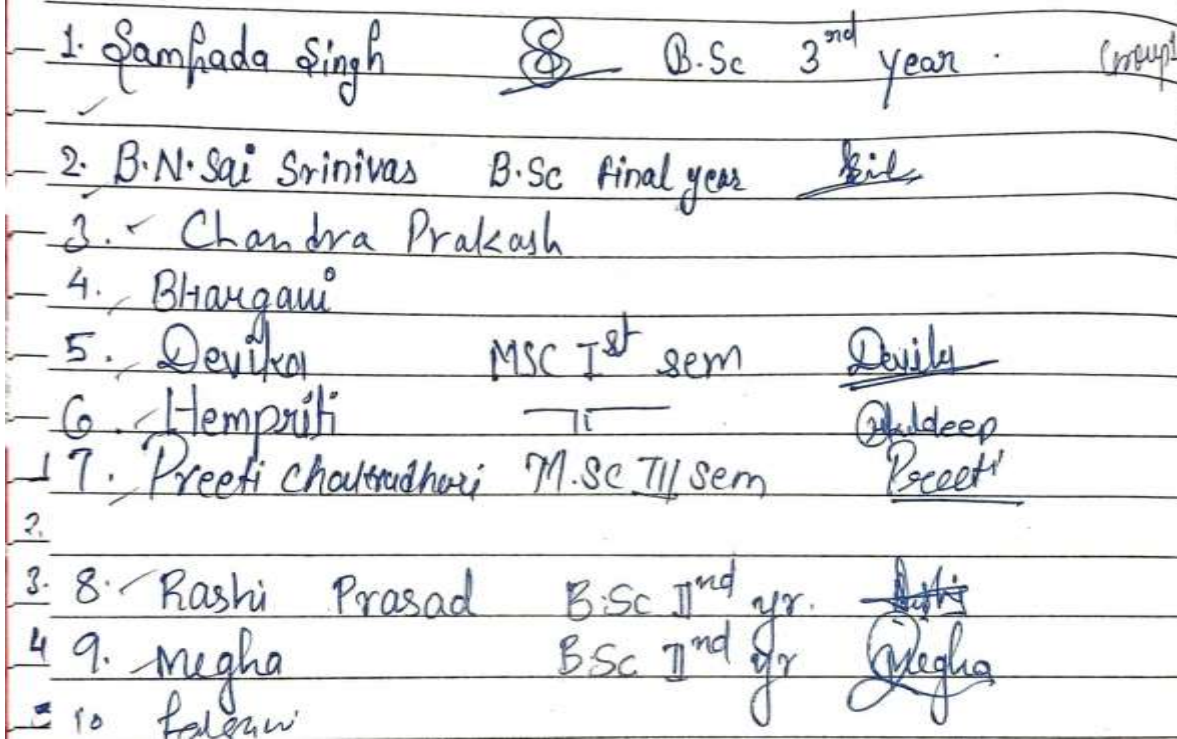 1. Sampada Singh B.Sc 3rd year. Group1
2. B.N. Sai Srinivas B.Sc final year
3. Chandra Prakash
4. Bhargavi
5. Devika MSC Ist sem Devika
6. Hempriti
7. Preeti M.SC III sem Preeti
2.
3. 8. Rashi Prasad B.Sc IInd yr.
4 9. Megha B.Sc IInd yr Megha
10